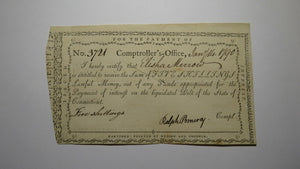 FOR THE PAYMENT OF
No. 3721 Comptroller's-Office, 1790
I hereby certify that Elisha Merrow
is entitled to receive the Sum of FIVE SHILLINGS
Lawful Money, out of any Funds appropriated for the
Payment of Interest on the liquidated Debt of the State of
Connecticut.
Five shillings Ralph Pomeroy Compt.
HARTFORD: PRINTED BY HUDSON AND GOODWIN.